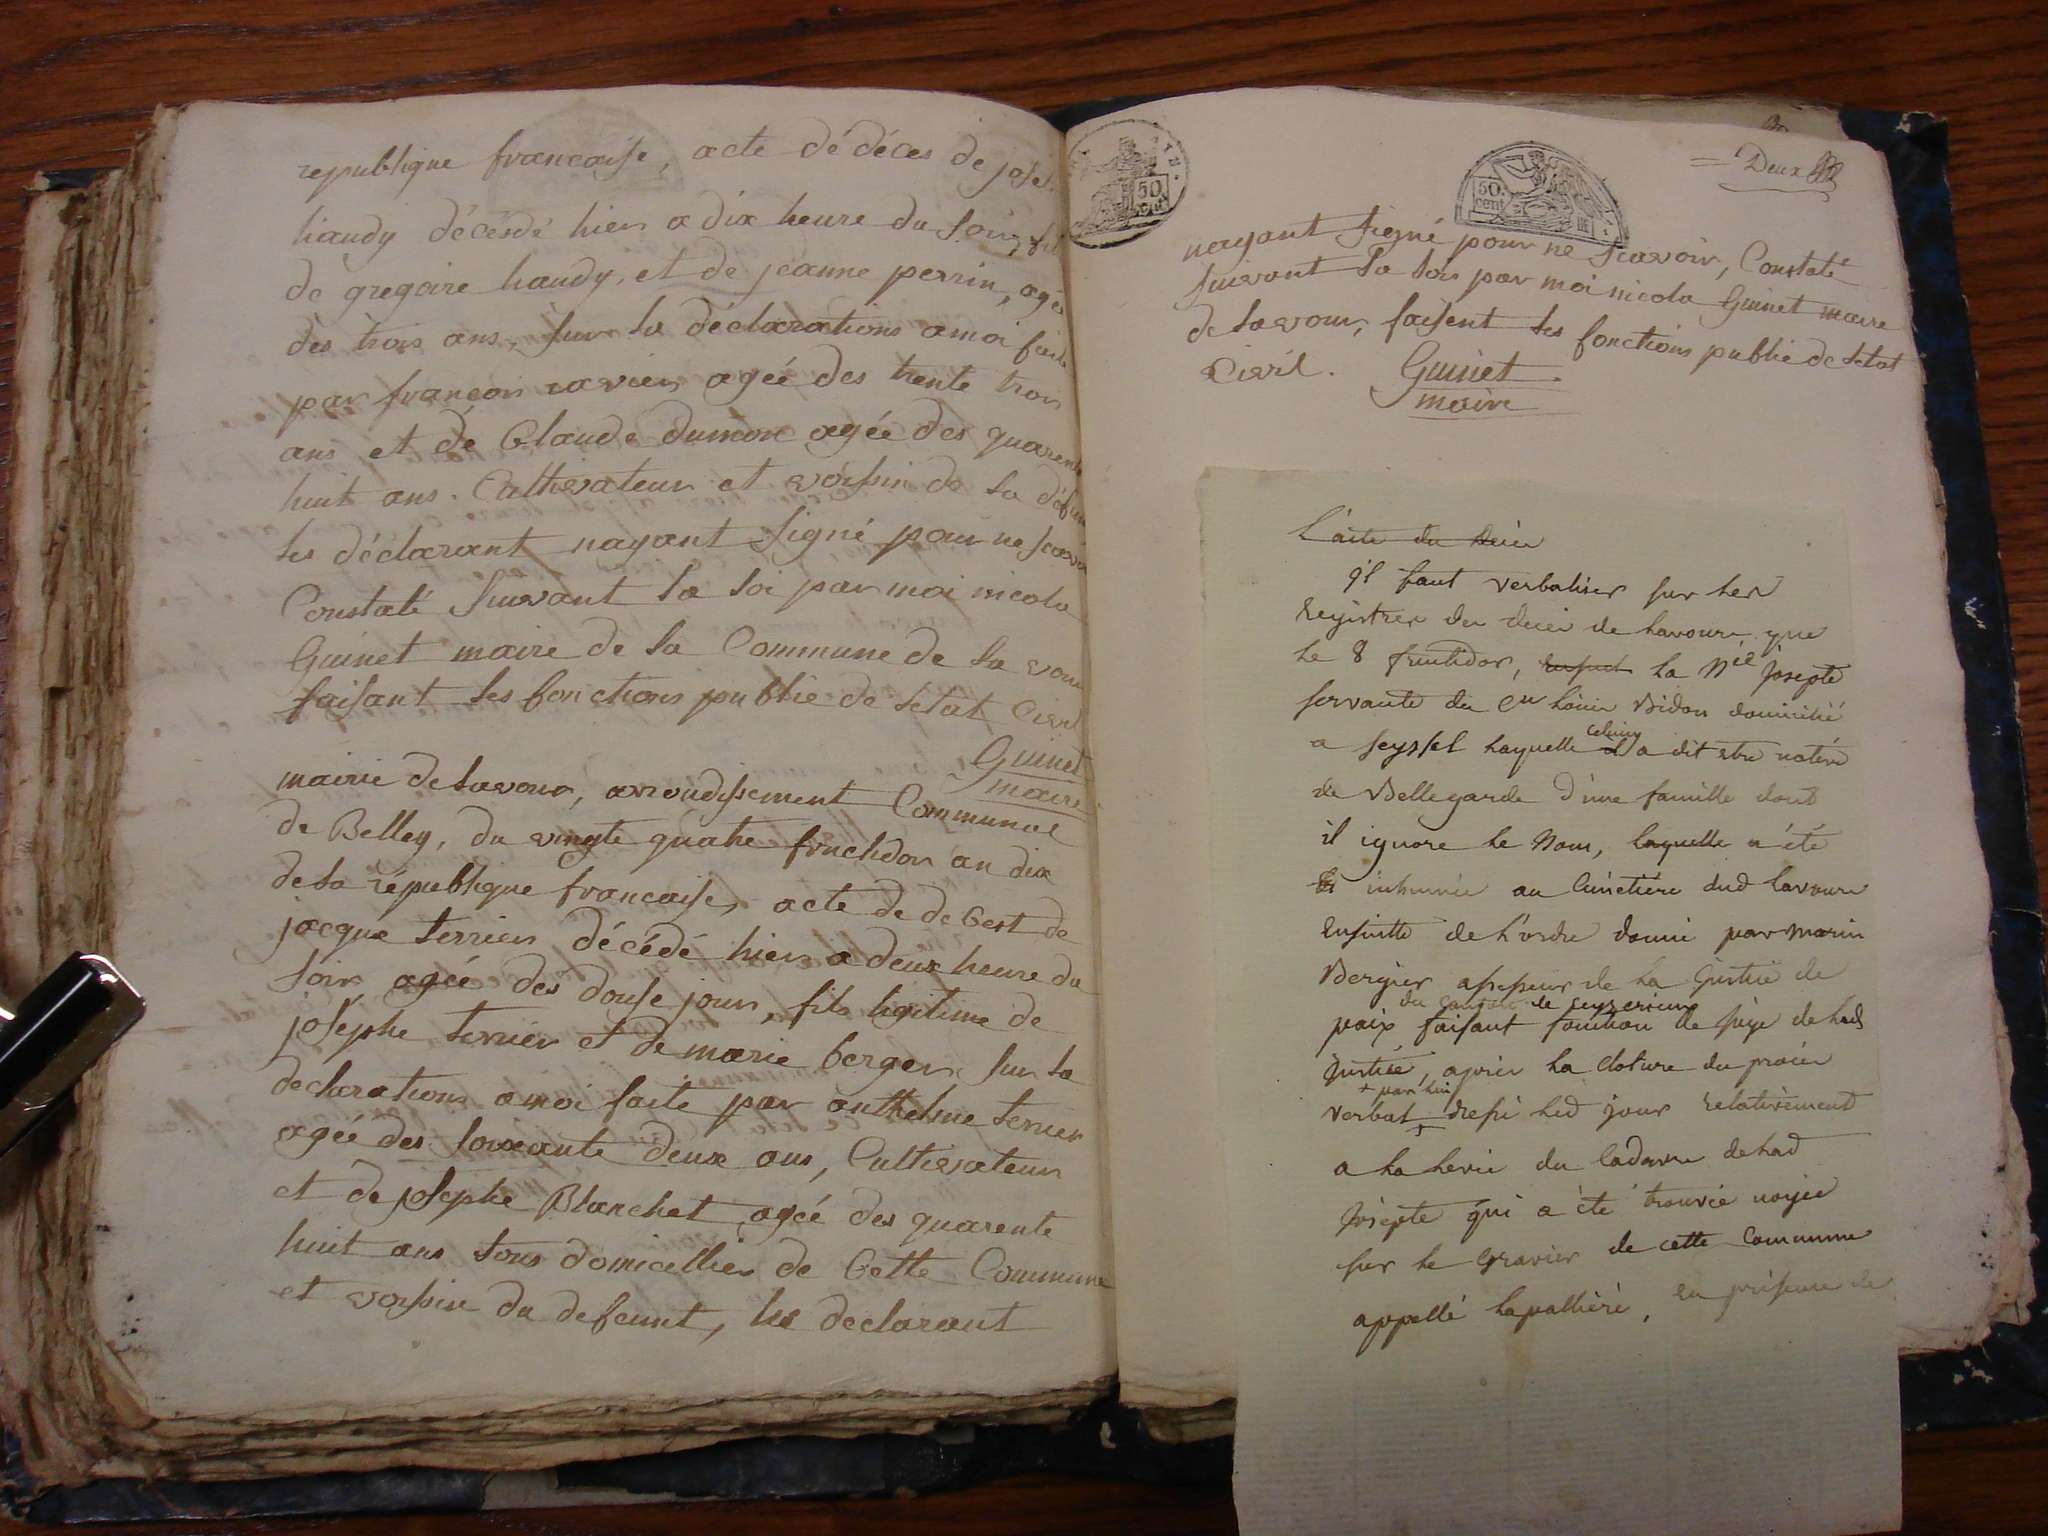 republique francaise, acte dé déces de jose
haudy décédé hier a dix heure du soir, fil
de gregoire haudy, et de jeanne perrin, agée
des trois ans, sur la déclarations a moi faite
par françois ravier agée des trente trois
ans et dé Claude dumon agée des quarente
huit ans. Cultivateur et voissin de la défun
les déclarant nayant signé pour ne scavoir
Constaté suivant la loi par moi nicola
Guinet maire de la Commune de la vour
faisant les fonctions public de letat Civil
Guinet
maire
mairie de lavour, arrondissement Communal
de Belley, du vingte quatre fructidor an dix
de la république francaise, acte de de Cest de
jacque terrier décédé hier a deux heure du
soir agée des douse jour, fils ligitime de
joséphe terrier et de marie berger, sur la
declarations a moi faite par anthelme terrier
agée des soixante deux ans, Cultivateur
et de joséphe Blanchet agée des quarente
huit ans tous domicellier de Cette Commune
et voissin du defeunt, les declarant
50
50. cent
= Deux
nayant signé pour ne scavoir, Constaté
suivant la lois par moi nicola Guinet maire
de lavour, faisent les fonctions public de letat
Civil. Guinet
maire
L'acte du décès
q'il faut verbaliser sur les
registres des décès de lavour que
le 8 fructidor, la N.ée Josepte
servante du c.en Louis Bidon domicilié
a seyssel laquelle celuicy a dit etre native
de Bellegarde d'une famille dont
il ignore le nom, laquelle a été
inhumée au Cimétière dud lavour
ensuitte de l'ordre donné par marin
Bergier assesseur de la Justice de
du canton de ceyzerieux
paix faisant fonction de juge de lad
justice, après la cloture du procès
+ par lui
verbal + dressé led jour relativement
a la levée du Cadavre de lad
Josepte qui a été trouvée noyée
sur le gravier de cette Commune
appellé lapallière, en présence de